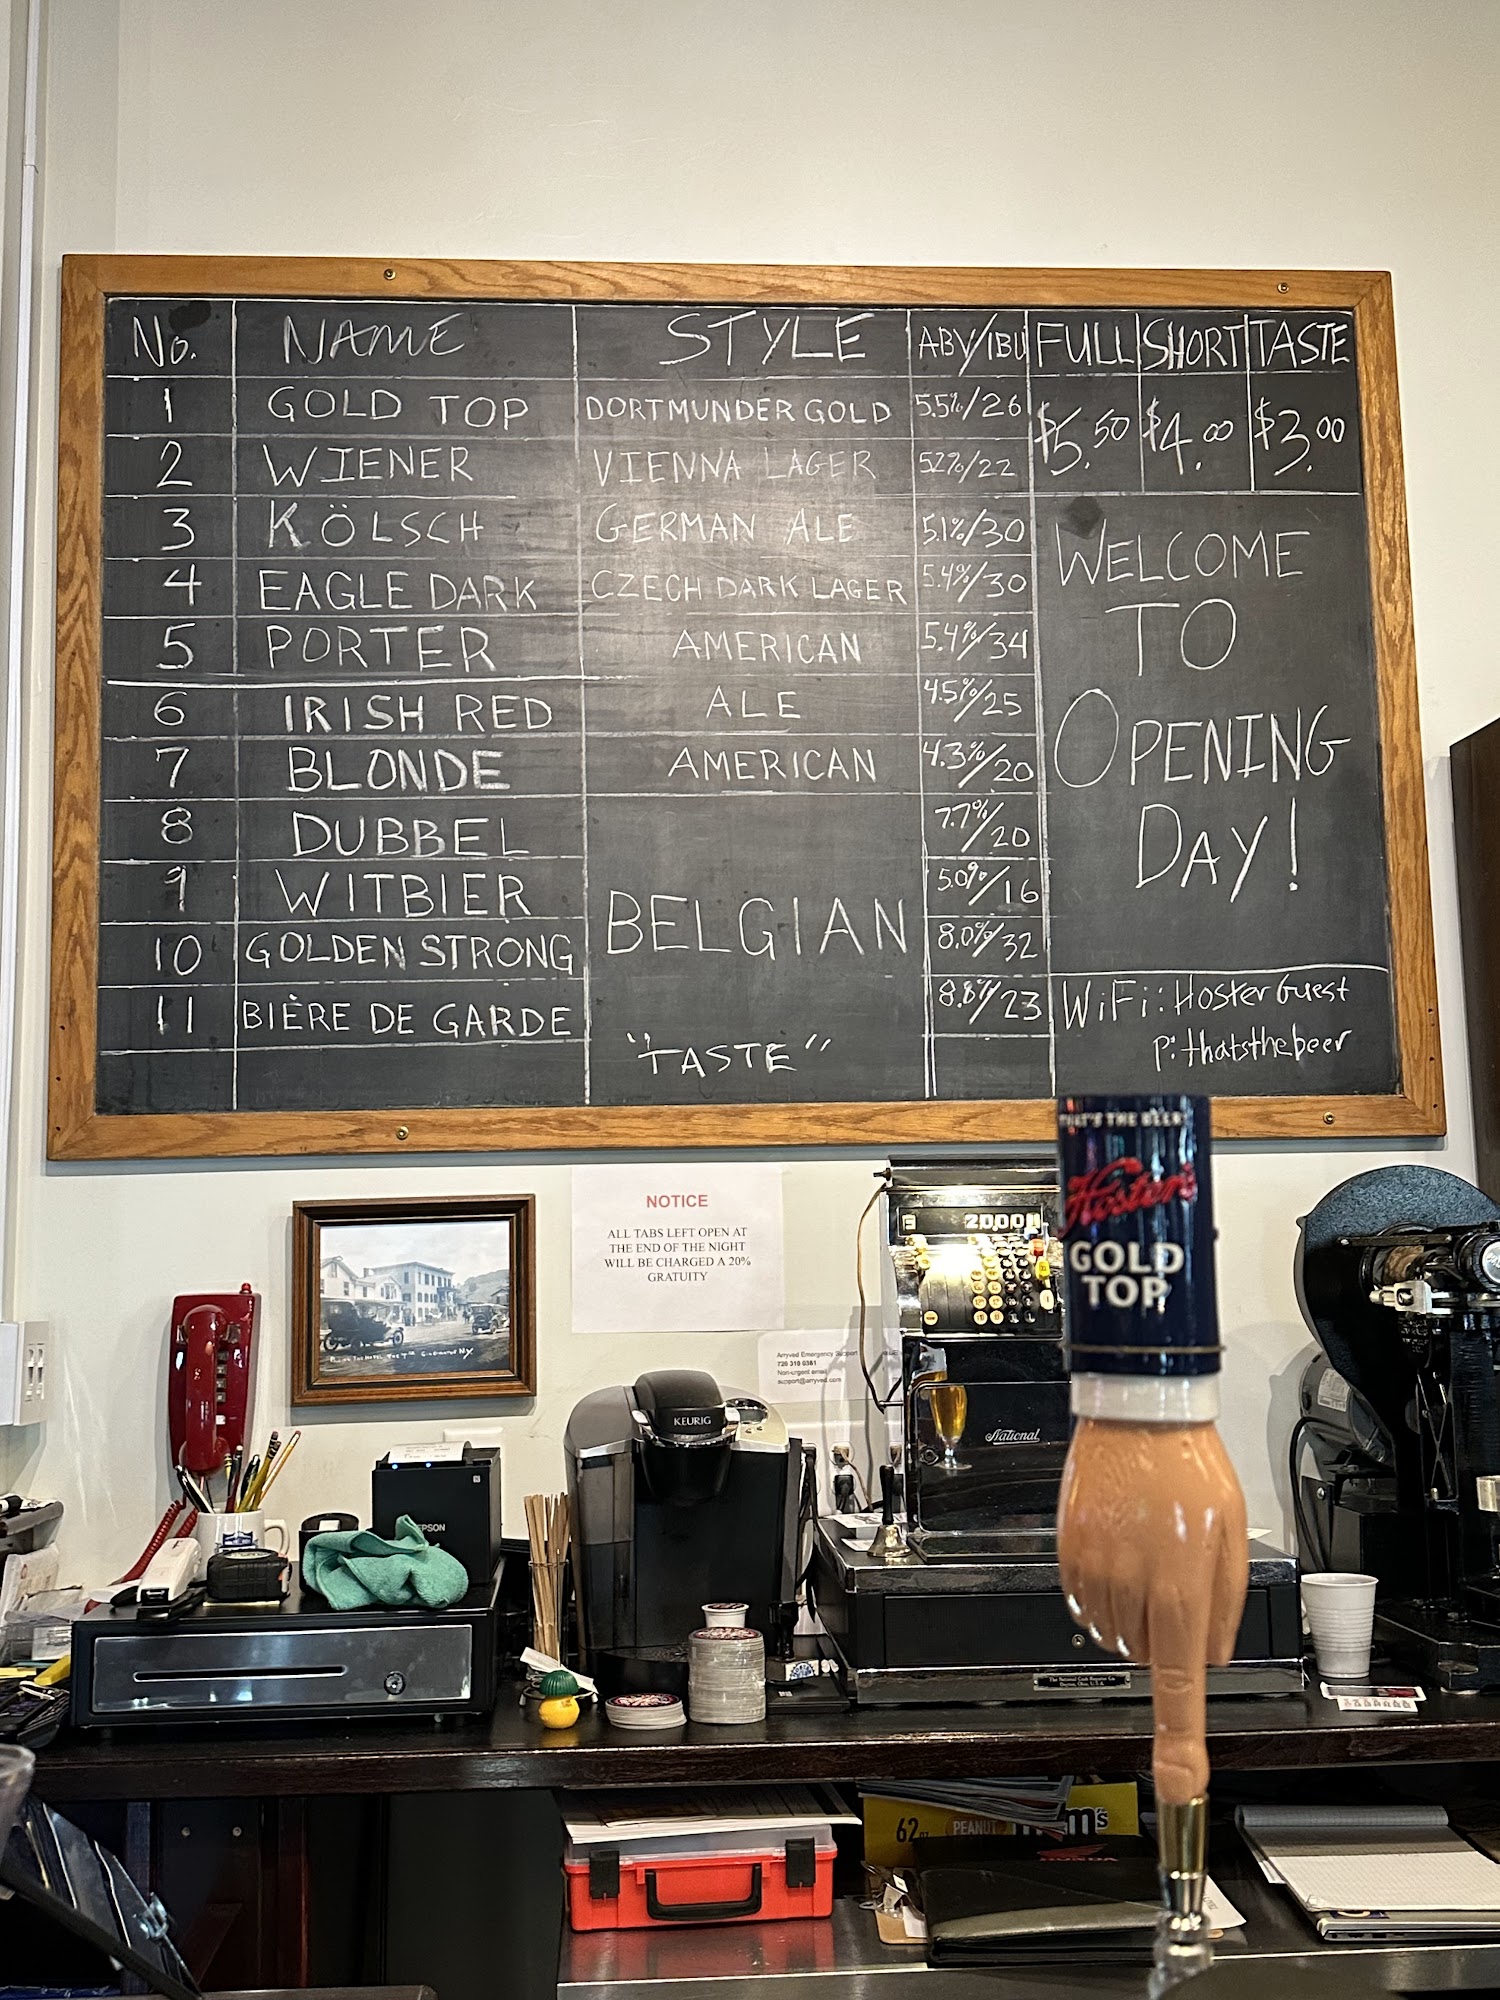 No. NAME STYLE ABV/IBU FULL SHORT TASTE
1 GOLD TOP DORTMUNDER GOLD 5.5%/26 $5.50 $4.00 $3.00
2 WIENER VIENNA LAGER 5.2%/22
3 KÖLSCH GERMAN ALE 5.1%/30
4 EAGLE DARK CZECH DARK LAGER 5.4%/30
5 PORTER AMERICAN 5.4%/34
6 IRISH RED ALE 4.5%/25
7 BLONDE AMERICAN 4.3%/20
8 DUBBEL 7.7%/20
9 WITBIER 5.0%/16
10 GOLDEN STRONG BELGIAN 8.0%/32
11 BIÈRE DE GARDE 8.8%/23
"TASTE"
WELCOME
TO
OPENING
DAY!
WiFi: Hoster Guest
p: thatsthebeer
NOTICE
ALL TABS LEFT OPEN AT
THE END OF THE NIGHT
WILL BE CHARGED A 20%
GRATUITY
Arryved Emergency Support
720 310 0361
Non-urgent email
support@arryved.com
THAT'S THE BEER
Hoster's
GOLD
TOP
KEURIG
EPSON
National
62
PEANUT
m's
HONDA